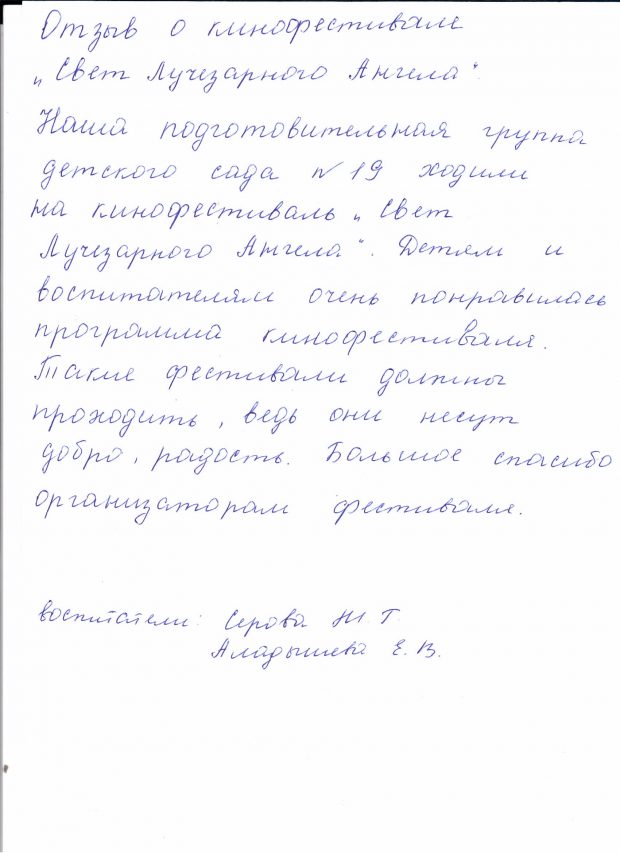 Отзыв о кинофестивале
„Свет Лучезарного Ангела“.
Наша подготовительная группа
детского сада №19 ходили
на кинофестиваль „Свет
Лучезарного Ангела“. Детям и
воспитателям очень понравилась
программа кинофестиваля.
Такие фестивали должны
проходить, ведь они несут
добро, радость. Большое спасибо
организаторам фестиваля.
воспитатели: Серова Н. Г.
Аладышева Е. В.